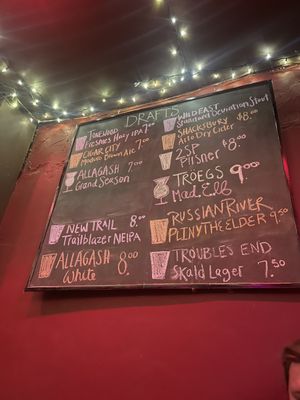 DRAFTS
TONEWOOD
Freshies Hazy IPA 7.00
CIGAR CITY
Maduro Brown Ale 7.00
ALLAGASH 7.00
Grand Season
NEW TRAIL 8.00
Trailblazer NEIPA
ALLAGASH 8.00
White
WILD EAST
Standard Deviation Stout
SHACKSBURY $8.00
Arlo Dry Cider
2SP $8.00
Pilsner
TROEGS 9.00
Mad Elf
RUSSIAN RIVER
PLINY THE ELDER 9.50
TROUBLES END
Skald Lager 7.50